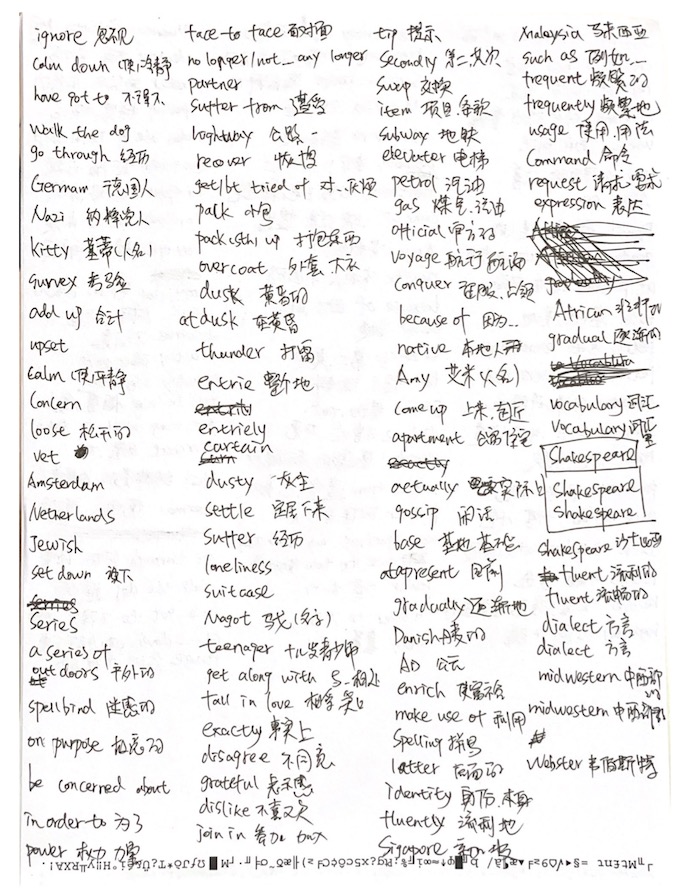 ignore 忽视
calm down 使冷静
have got to 不得不
walk the dog
go through 经历
German 德国人
Nazi 纳粹党人
Kitty 基蒂(人名)
survex 考验
add up 合计
upset
calm 使平静
Concern
loose 松开的
vet
Amsterdam
Netherlands
Jewish
set down 放下
series
Series
a series of
outdoors 户外的
spellbind 迷惑的
on purpose 故意的
be concerned about
in order to 为了
power 权力 力量
face to face 面对面
no longer/not... any longer
partner
suffer from 遭受
highway 公路
recover 恢复
get/bt tried of 对..厌烦
pack 小包
pack(sth) up 打包东西
overcoat 外套 大衣
dusk 黄昏的
at dusk 在黄昏
thunder 打雷
entrie 整个地
entriely
curtain
dusty
settle 定居下来
Suffer 经历
loneliness
suitcase
Magot 马戈(名字)
teenager 十几岁青少年
get along with 与..相处
fall in love 相爱
exactly 事实上
disagree 不同意
grateful 表示感恩
dislike 不喜欢
join in 参加 加入
tip 提示
Secondly 第二,其次
swep 交换
item 项目.条款
subway 地铁
elevater 电梯
petrol 汽油
gas 煤气.汽油
official 官方的
voyage 航行 航海
Conquer 征服.占领
because of 因为..
native 本地人
Amy 艾米(人名)
come up 上来,走近
apartment 公寓住宅
exactly
actually 实际上
gossip 闲话
base 基地 基础
atapresent 目前
gradually 逐渐地
Danish 丹麦的
AD 公元
enrich 使富裕
make use of 利用
Spelling 拼写
latter 后面的
identity 身份.本身
fluently 流利地
Sigapore 新加坡
Malaysia 马来西亚
such as 例如...
frequent 频繁的
frequently 频繁地
usage 使用.用法
Command 命令
request 请求.要求
expression 表达
African 非洲的
gradual 逐渐的
vocabulary 词汇
Vocabulary 词汇
Shakespeare
Shakespeare
Shakespeare
Shakespeare 莎士比亚
fluent 流利的
fluent 流畅的
dialect 方言
dialect 方言
midwestern 中西部的
midwestern 中西部的
Webster 韦伯斯特